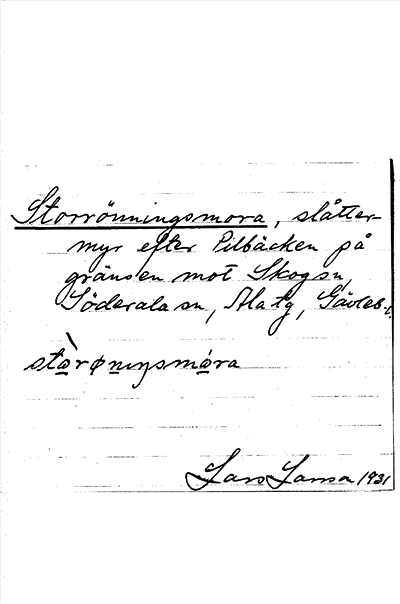 Storrönningsmora, slåtter-
myr efter Pilbäcken på
gränsen mot Skogsn,
Söderala sn, Ala tg, Gävleb. l.
stòrøniŋsmóra
Lars Larsson 1931